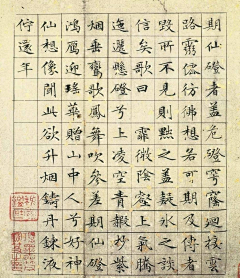 期仙磴者蓋危磴穹窿迴接雲
路靈僊仿彿想若可期及傳者
毀所不見則黜之蓋疑冰之談
信矣歌曰霏微陰壑上氣騰
迤邐懸磴兮上凌空青霞杪紫
烟垂鸞歌鳳舞吹參差期仙磴
鴻駕迎瑤華贈山中人兮好神
仙想像聞此欲升烟鑄丹鍊液
佇還年